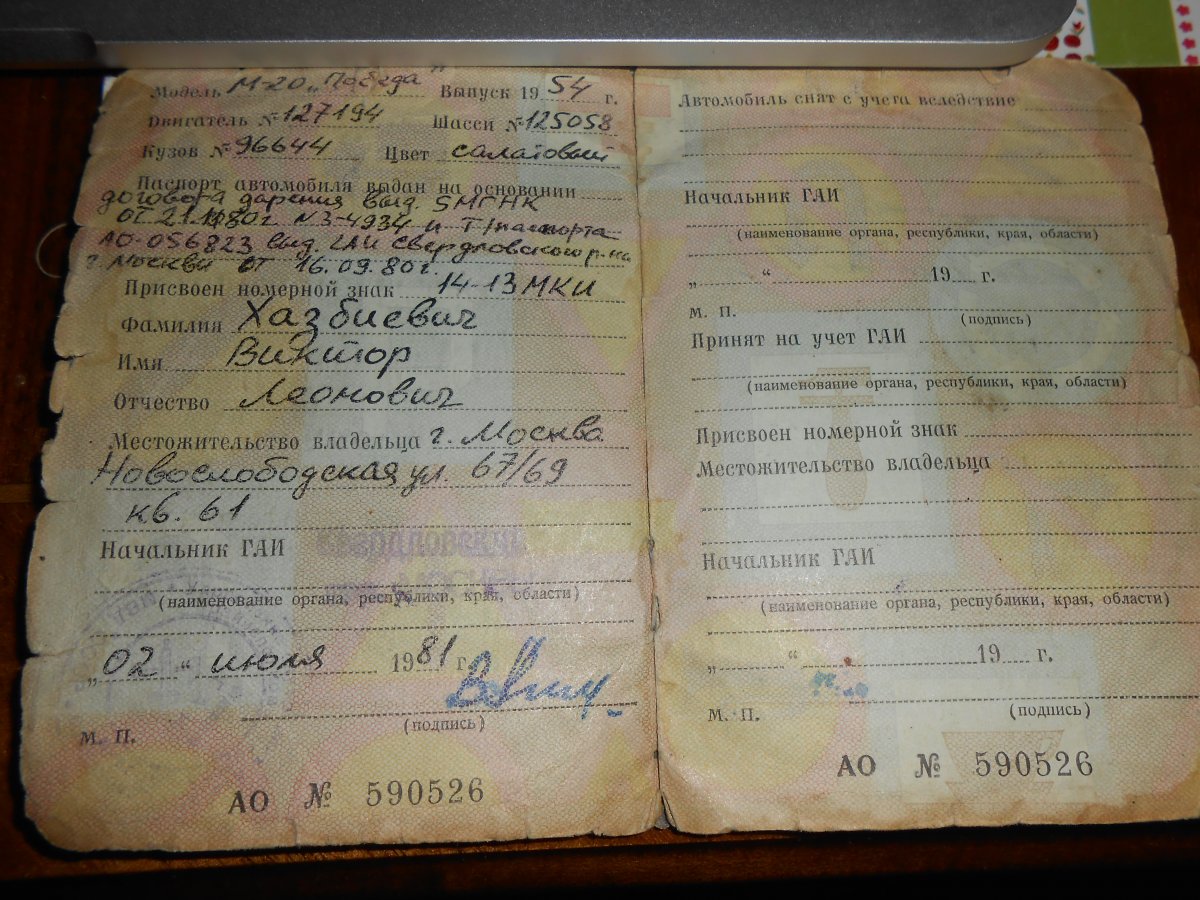 Модель М-20 „Победа" Выпуск 1954 г.
Двигатель № 127194 Шасси № 125058
Кузов № 96644 Цвет салатовый
Паспорт автомобиля выдан на основании
договора дарения выд. 5МГНК
от 80г. №3-4934 и Т/паспорта
АО-056823 выд. ГАИ Свердловского р-на
г. Москвы от 16.09.80г.
Присвоен номерной знак 14-13 МКИ
Фамилия Хазбиевич
Имя Виктор
Отчество Леонович
Местожительство владельца г. Москва
Новослободская ул. 67/69
кв. 61
Начальник ГАИ
(наименование органа, республики, края, области)
„02“ июля 1981 г.
(подпись)
М. П.
АО № 590526
Автомобиль снят с учета вследствие
Начальник ГАИ
(наименование органа, республики, края, области)
„ “ 19 г.
М. П.
(подпись)
Принят на учет ГАИ
(наименование органа, республики, края, области)
Присвоен номерной знак
Местожительство владельца
Начальник ГАИ
(наименование органа, республики, края, области)
„ “ 19 г.
М. П. (подпись)
АО № 590526